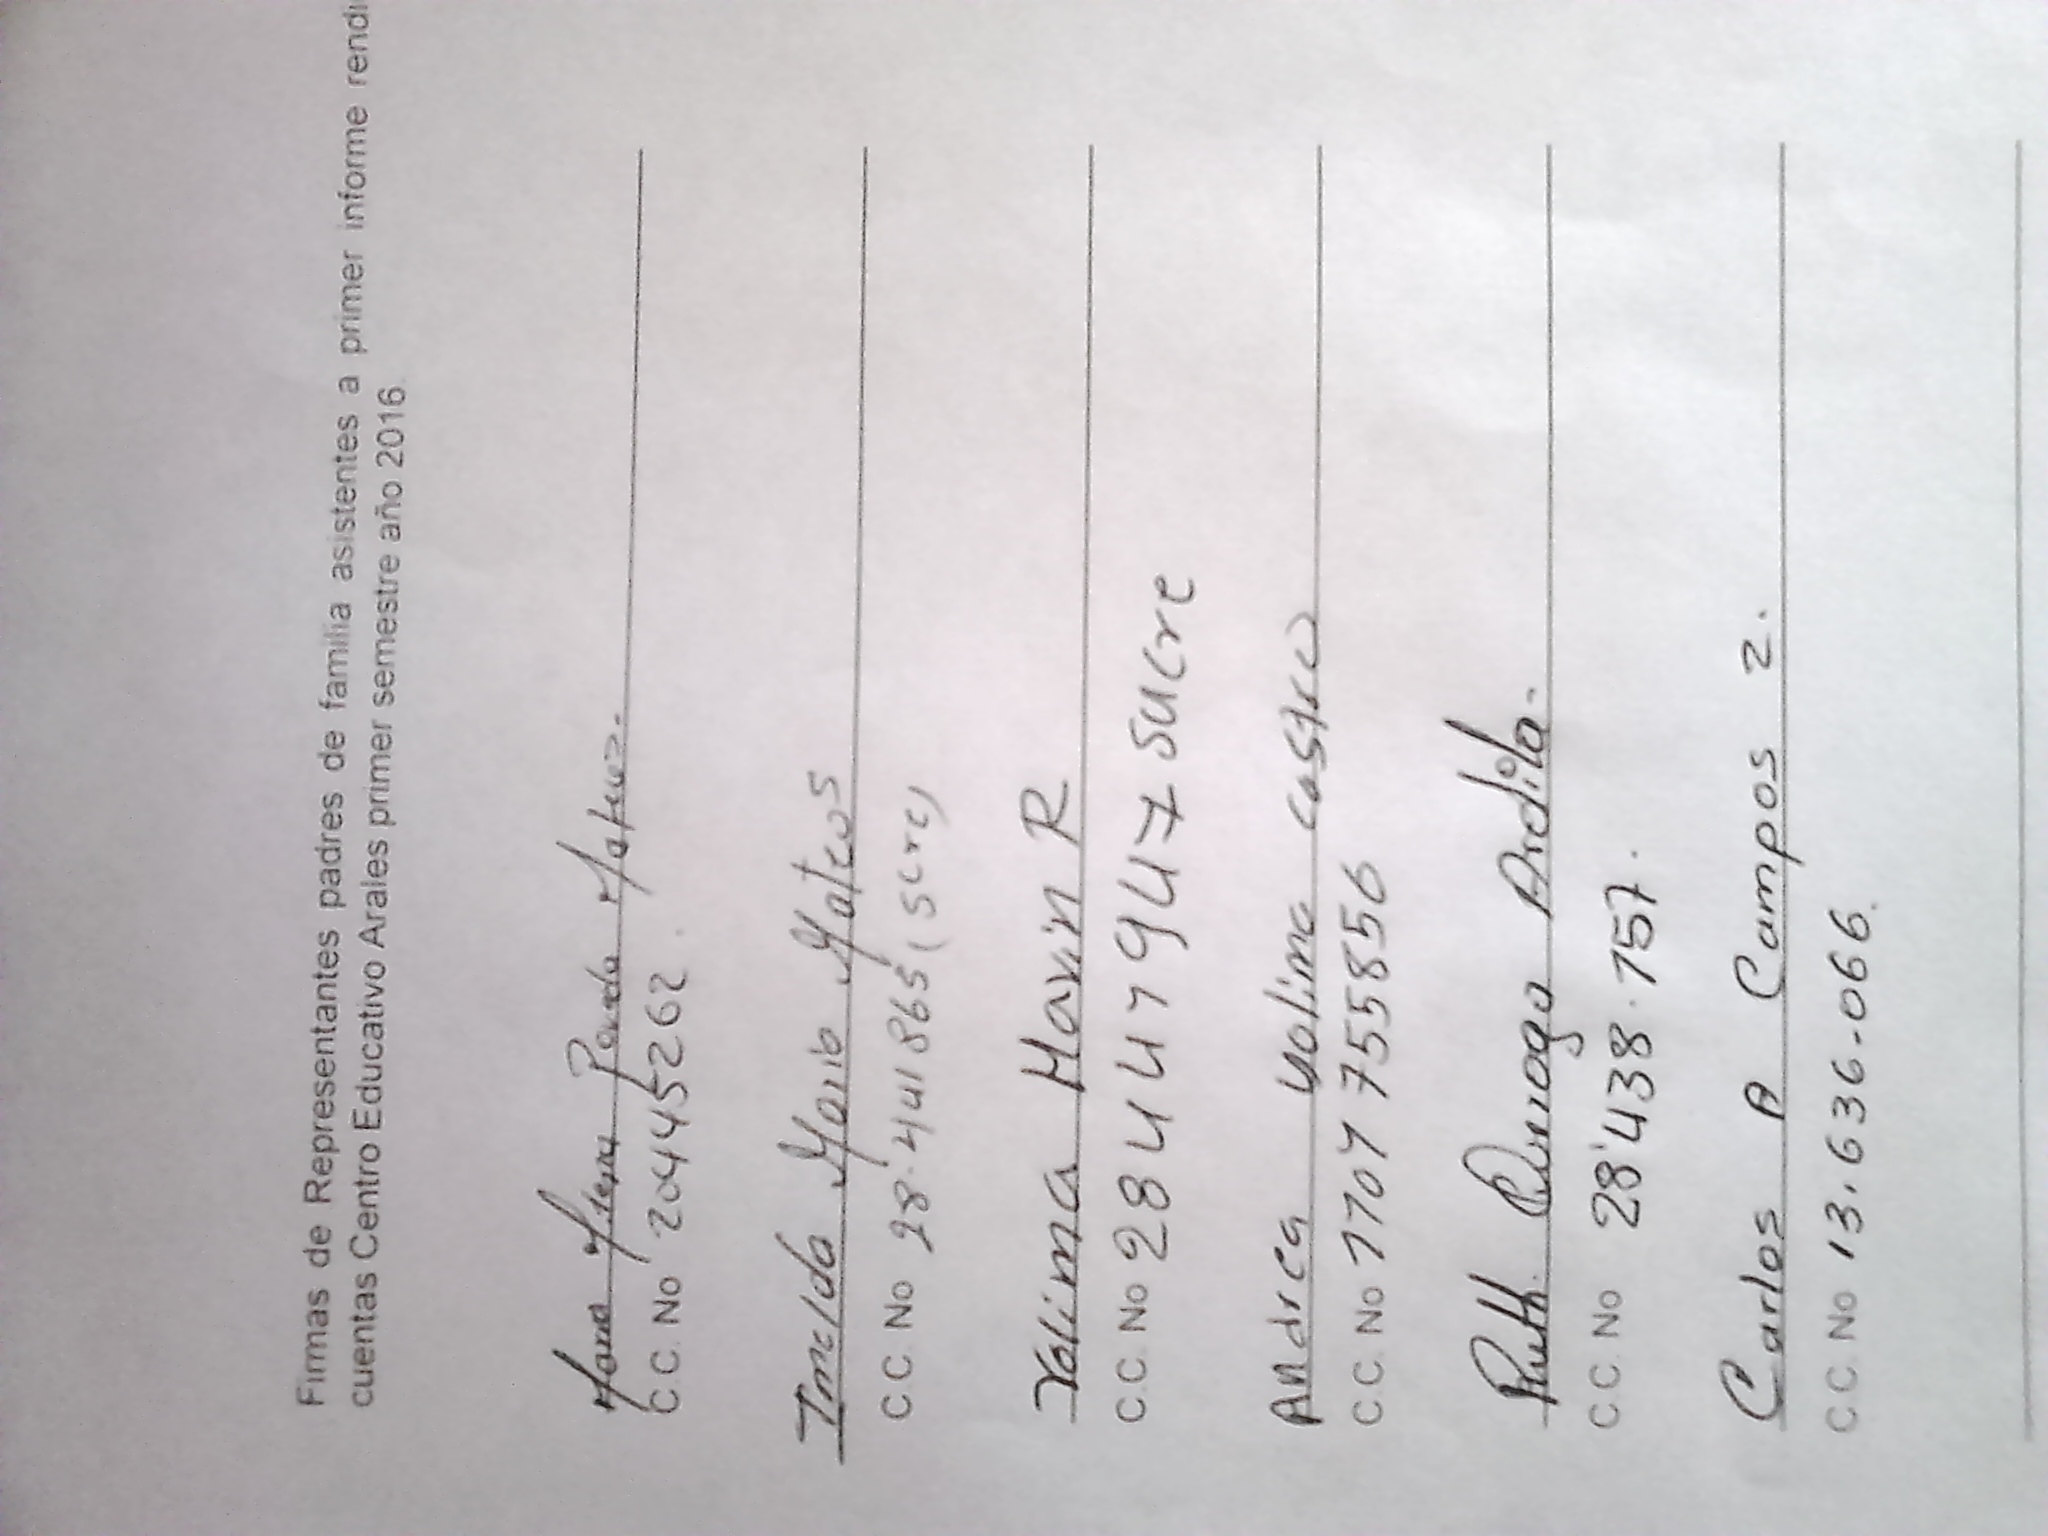 Firmas de Representantes padres de familia asistentes a primer informe rendi
cuentas Centro Educativo Arales primer semestre año 2016
Pardo Mateus.
C.C. No 20445262.
Imelda María Mateus
C.C. No 28.441865 (Scre)
Yolima Marin R
C.C. No 28447947 Sucre
Andrea yolima castro
C.C. No
Ruth Quiroga Ardila.
C.C. No 28'438.757.
Carlos A Campos Z.
C.C. No 13.636.066.